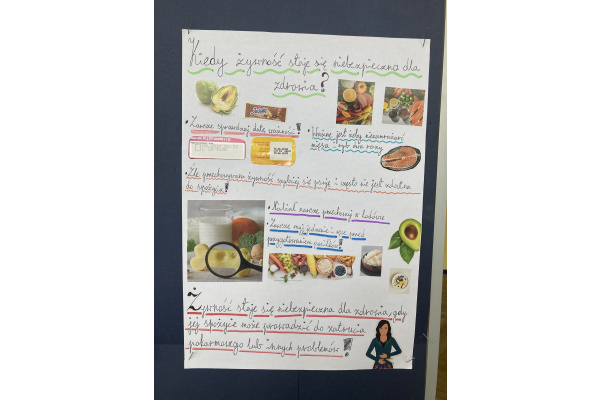 Kiedy żywność staje się niebezpieczna dla
zdrowia?
• Zawsze sprawdzaj datę ważności!
• Ważne jest żeby niezamrażać
mięsa i ryb dwa razy
• Źle przechowywana żywność szybciej się psuje i często nie jest zdatna
do spożycia!
• Nabiał zawsze przechowuj w lodówce
• Zawsze myj jedzenie i ręce przed
przygotowaniem posiłków!
Żywność staje się niebezpieczna dla zdrowia, gdy
jej spożycie może prowadzić do zatrucia
pokarmowego lub innych problemów!